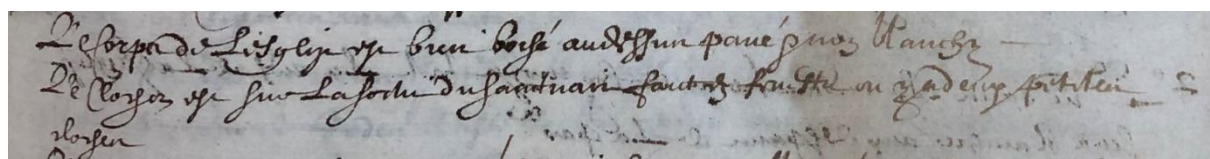 Le corps de Lesglise est bien voché audessus pavé & non blanchy
Le clocher est sur La porte du sanctuaire fait en on y a deux petites
cloches